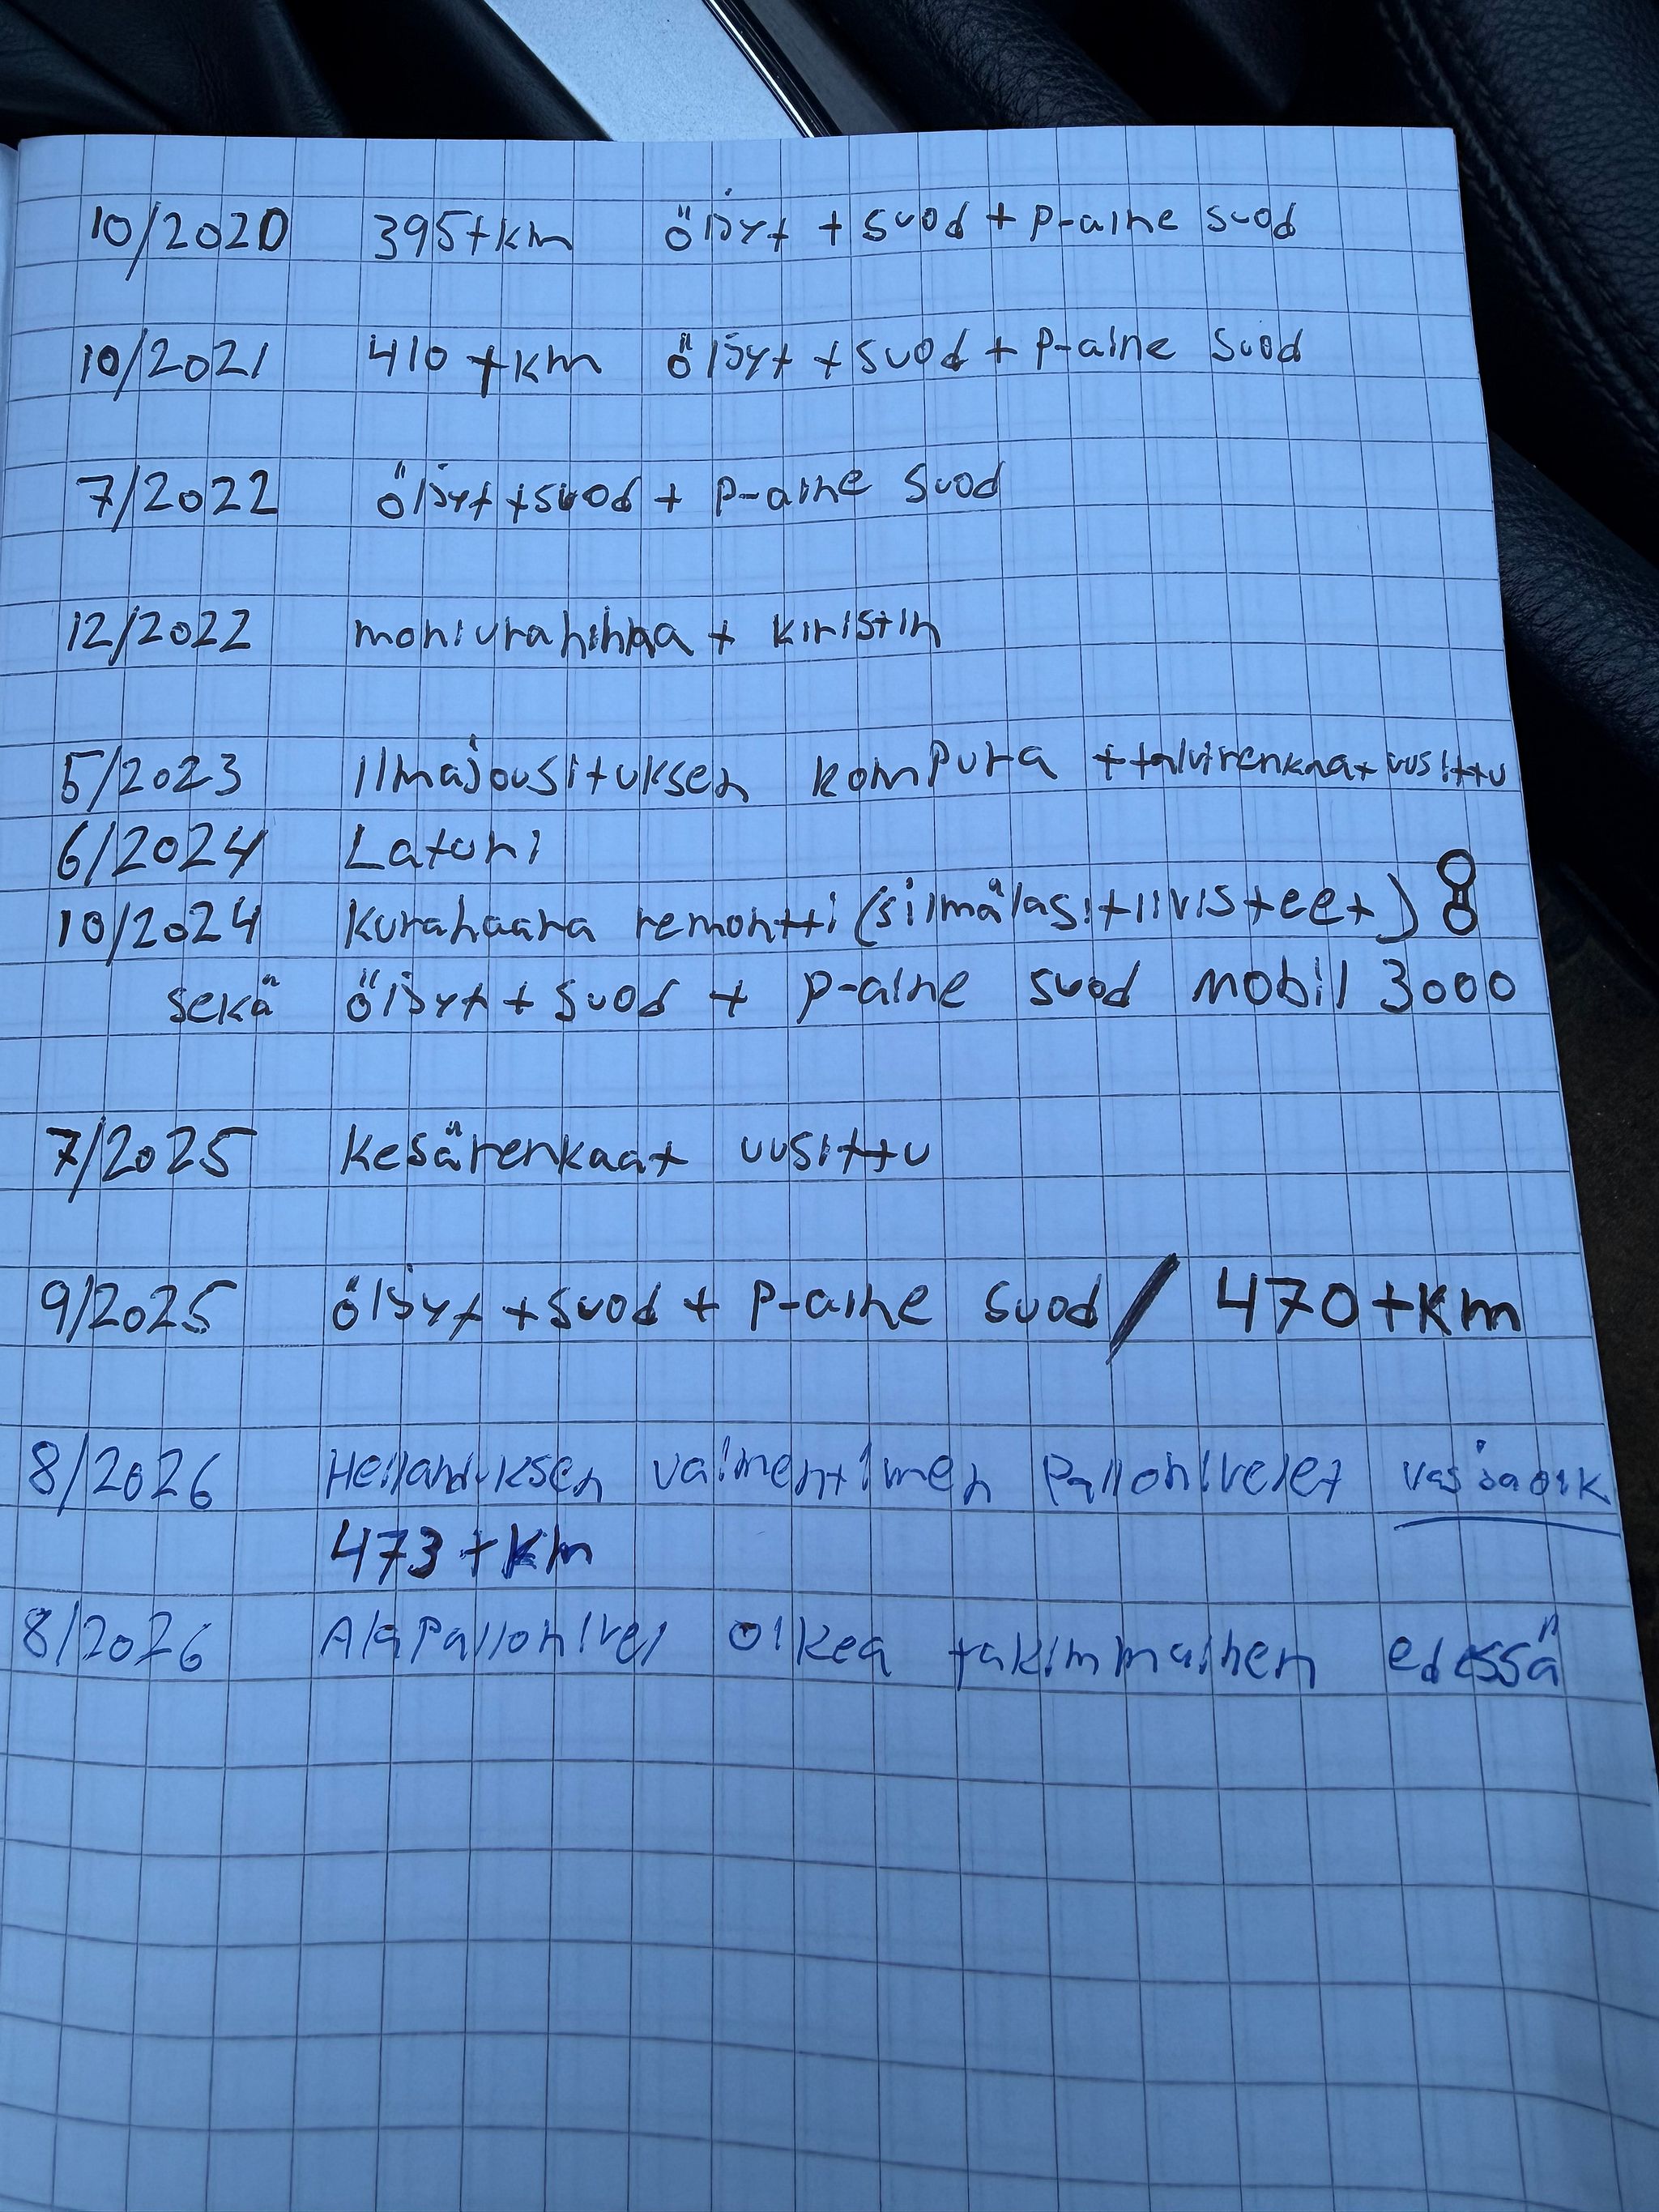 10/2020 395tkm öljyt + suod + p-aine suod
10/2021 410 tkm öljyt + suod + p-aine suod
7/2022 öljyt + suod + p-aine suod
12/2022 moniurahihna + kiristin
5/2023 Ilmajousituksen kompura + talvirenkaat uusittu
6/2024 Laturi
10/2024 Kurahaara remontti (silmälasitiivisteet)
sekä öljyt + suod + p-aine suod mobil 3000
7/2025 Kesärenkaat uusittu
9/2025 öljyt + suod + p-aine suod / 470 tkm
8/2026 Heilanduksen vaimentimen pallonivelet vas ja oik
473 tkm
8/2026 Alapallonivel oikea takimmainen edessä